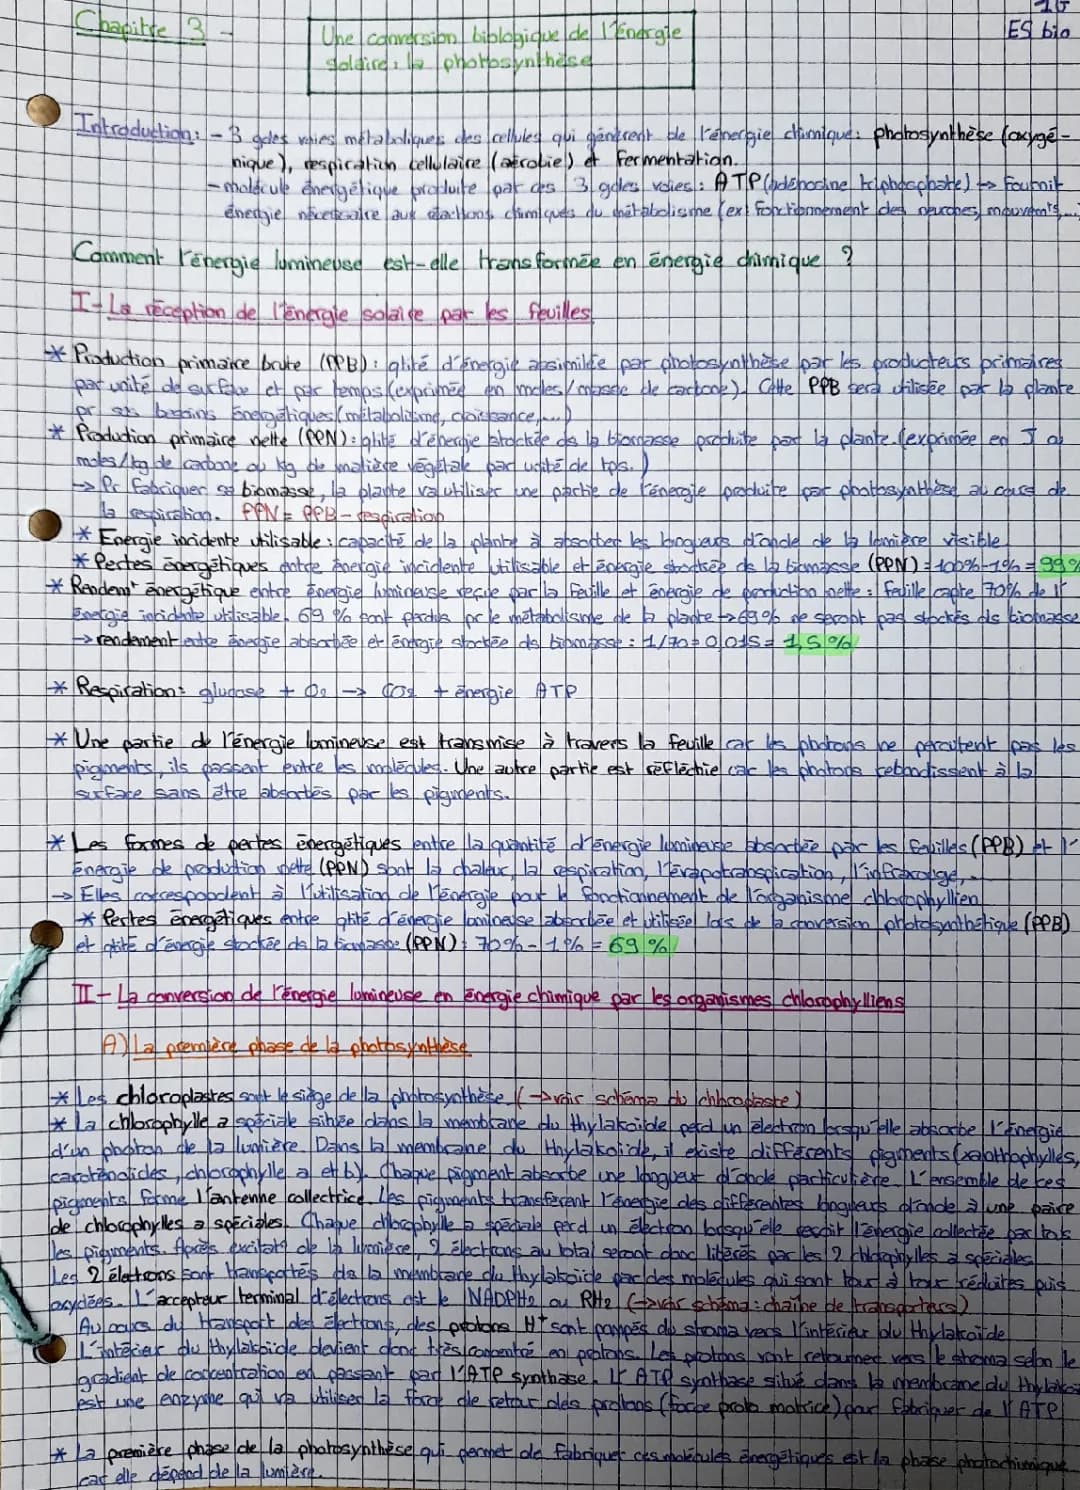 Chapitre 3 -
Une conversion biologique de l'énergie
solaire : la photosynthèse
1G
ES bio
Introduction : - 3 gdes voies métaboliques des cellules qui génèrent de l'énergie chimique : photosynthèse (oxygé-
nique), respiration cellulaire (aérobie) et fermentation.
- molécule énergétique produite par ces 3 gdes voies : ATP (adénosine triphosphate) → fournit
énergie nécessaire aux réactions chimiques du métabolisme (ex : fonctionnement des neurones, mouvemts,...
Comment l'énergie lumineuse est-elle transformée en énergie chimique ?
I - La réception de l'énergie solaire par les feuilles
* Production primaire brute (PPB) : qtité d'énergie assimilée par photosynthèse par les producteurs primaires
par unité de surface et par temps (exprimée en moles/masse de carbone). Cette PPB sera utilisée par la plante
pr ses besoins énergétiques (métabolisme, croissance,...)
* Production primaire nette (PPN) : qtité d'énergie stockée ds la biomasse produite par la plante (exprimée en J ou
moles/kg de carbone ou kg de matière végétale par unité de tps.)
→ Pr fabriquer sa biomasse, la plante va utiliser une partie de l'énergie produite par photosynthèse au cours de
la respiration. PPN = PPB - respiration
* Energie incidente utilisable : capacité de la plante à absorber les longueurs d'onde de la lumière visible
* Pertes énergétiques entre énergie incidente utilisable et énergie stockée ds la biomasse (PPN) = 100% - 1% = 99%
* Rendemt énergétique entre énergie lumineuse reçue par la feuille et énergie de production nette : feuille capte 70% de l'
énergie incidente utilisable. 69 % sont perdus pr le métabolisme de la plante → 69% ne seront pas stockés ds biomasse
→ rendement entre énergie absorbée et énergie stockée ds biomasse : 1/70 = 0,015 = 1,5 %
* Respiration : glucose + O2 → CO2 + énergie ATP
* Une partie de l'énergie lumineuse est transmise à travers la feuille car les photons ne percutent pas les
pigments, ils passent entre les molécules. Une autre partie est réfléchie car les photons rebondissent à la
surface sans être absorbés par les pigments.
* Les formes de pertes énergétiques entre la quantité d'énergie lumineuse absorbée par les feuilles (PPB) et l'
énergie de production nette (PPN) sont la chaleur, la respiration, l'évapotranspiration, l'infrarouge,...
→ Elles correspondent à l'utilisation de l'énergie par le fonctionnement de l'organisme chlorophyllien
* Pertes énergétiques entre qtité d'énergie lumineuse absorbée et utilisée lors de la conversion photosynthétique (PPB)
et qtité d'énergie stockée ds la biomasse (PPN) : 70% - 1% = 69 %
II - La conversion de l'énergie lumineuse en énergie chimique par les organismes chlorophylliens
A) La première phase de la photosynthèse
* Les chloroplastes sont le siège de la photosynthèse (→ voir schéma du chloroplaste)
* La chlorophylle a spéciale située dans la membrane du thylakoïde perd un électron lorsqu'elle absorbe l'énergie
d'un photon de la lumière. Dans la membrane du thylakoïde, il existe différents pigments (xanthophylles,
caroténoïdes, chlorophylle a et b). Chaque pigment absorbe une longueur d'onde particulière. L'ensemble de ces
pigments forme l'antenne collectrice. Les pigments transfèrent l'énergie des différentes longueurs d'onde à une paire
de chlorophylles a spéciales. Chaque chlorophylle a spéciale perd un électron lorsqu'elle reçoit l'énergie collectée par tous
les pigments. Après excitat° de la lumière, 2 électrons au total seront donc libérés par les 2 chlorophylles a spéciales
Les 2 électrons sont transportés ds la membrane du thylakoïde par des molécules qui sont tour à tour réduites puis
oxydées. L'accepteur terminal d'électrons est le NADPH2 ou RH2 (→ voir schéma : chaîne de transporteurs)
Au cours du transport des électrons, des protons H+ sont pompés du stroma vers l'intérieur du thylakoïde
L'intérieur du thylakoïde devient donc très concentré en protons. Les protons vont retourner vers le stroma selon le
gradient de concentration en passant par l'ATP synthase. L'ATP synthase situé dans la membrane du thylakoï
est une enzyme qui va utiliser la force de retour des protons (force proto motrice) pour fabriquer de l'ATP
* La première phase de la photosynthèse qui permet de fabriquer ces molécules énergétiques est la phase photochimique
car elle dépend de la lumière.